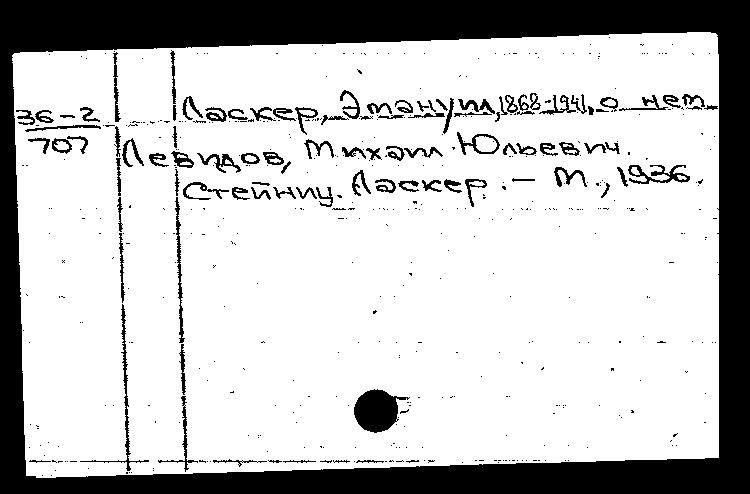 36-2
707
Ласкер, Эмануил, 1868-1941, о нем
Левидов, Михаил Юльевич.
Стейниц. Ласкер. – М., 1936.